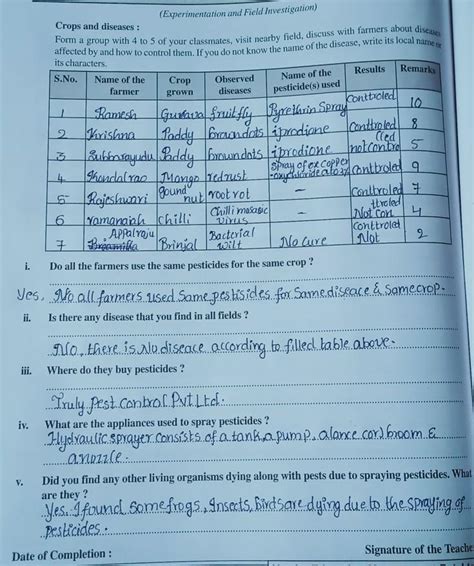 (Experimentation and Field Investigation)
Crops and diseases :
Form a group with 4 to 5 of your classmates, visit nearby field, discuss with farmers about diseases
affected by and how to control them. If you do not know the name of the disease, write its local name or
its characters.
S.No. Name of the farmer Crop grown Observed diseases Name of the pesticide(s) used Results Remarks
1 Ramesh Guvava fruitfly Pyrethrin Spray Conttroled 10
2 Krishna Paddy Browndots iprodione Conttroled 8
3 Subbarayudu Paddy Browndots iprodione not contro lled 5
4 Khandalrao Mango redrust Spray of ex copper -oxychloride Conttroled 9
5 Rajeshwari gound nut root rot – Conttroled 7
6 ramanaiah chilli Chilli mosasic virus – Not Con ttroled 4
7 Appalraju Brinjal Bacterial wilt No Cure Conttrolet Not 2
i. Do all the farmers use the same pesticides for the same crop ?
Yes, No all farmers used Same pestisides for Same diseace & Same crop.
ii. Is there any disease that you find in all fields ?
No, there is No diseace according to filled table above.
iii. Where do they buy pesticides ?
Truly Pest Control Pvt Ltd.
iv. What are the appliances used to spray pesticides ?
Hydraulic sprayer consists of a tank, a pump, a lance (or) broom &
a nozzle.
v. Did you find any other living organisms dying along with pests due to spraying of pesticides. What
are they ?
Yes. I found some frogs, Insects, Birds are dying due to the spraying of
pesticides.
Date of Completion : Signature of the Teache